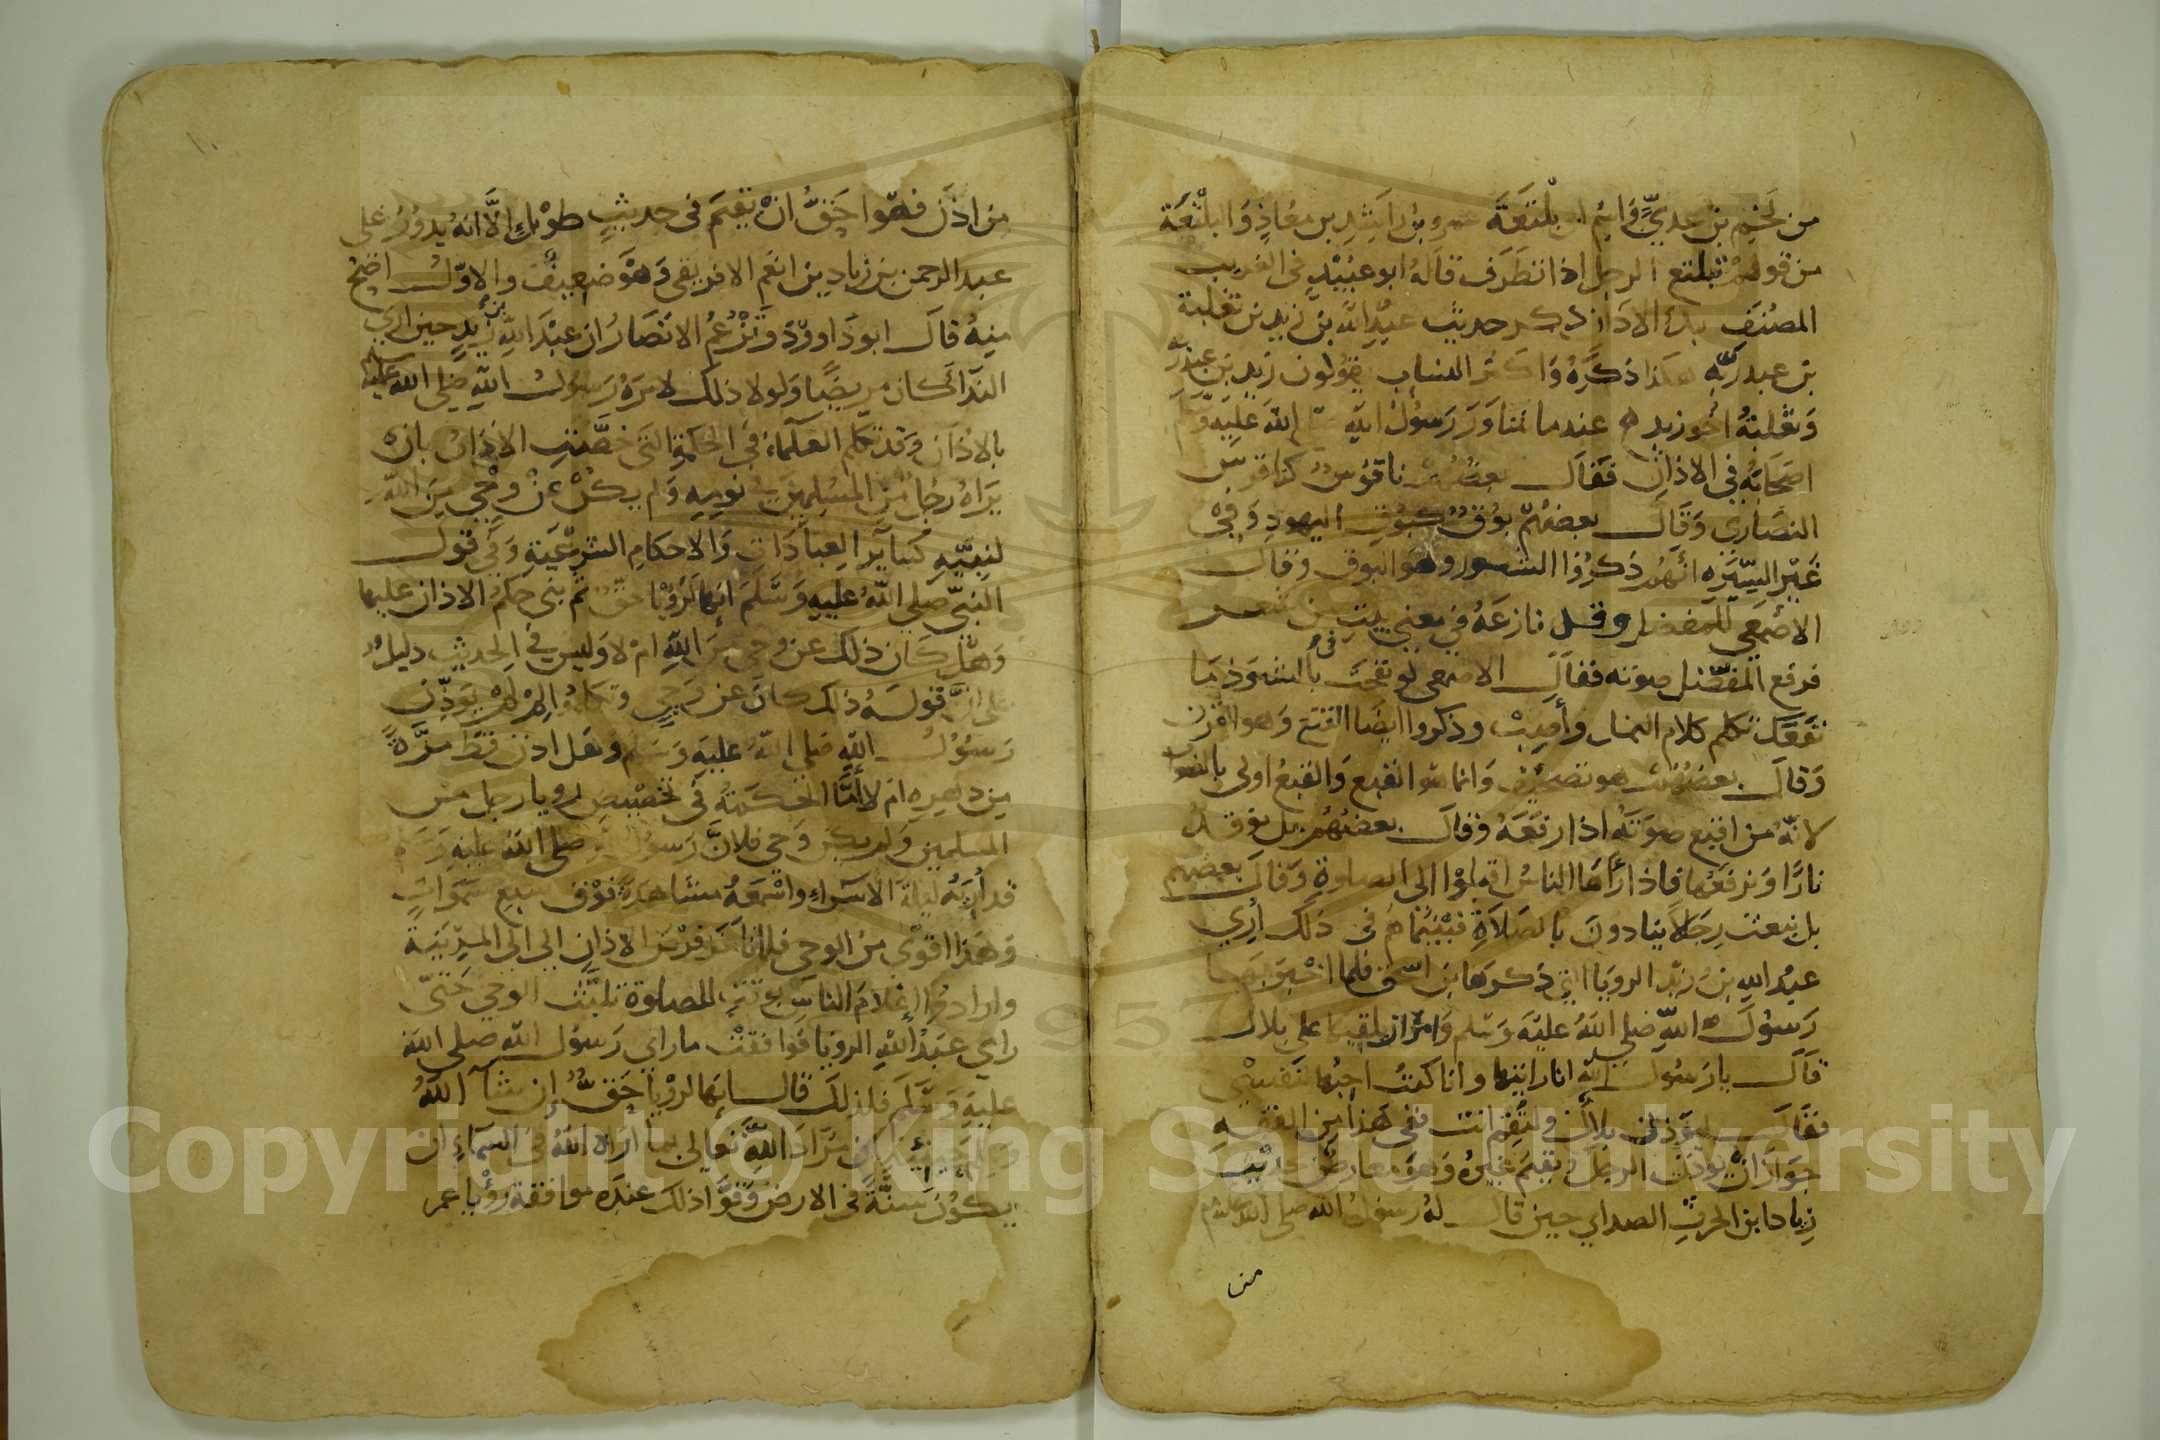 من لخم بن عديّ واسم ابي بلتعة عمرو بن راشد بن معاذ والبلتعة
من قولهم تبلتع الرجل اذا تظرف قاله ابو عبيد في الغريب
المصنف بدء الاذان ذكر حديث عبد الله بن زيد بن ثعلبة
بن عبد ربه هكذا ذكره واكثر النساب يقولون زيد بن عبد ربه
وثعلبة اخو زيد عندما شاور رسول الله صلى الله عليه وسلم
اصحابه في الاذان فقال بعضهم ناقوس كناقوس
النصارى وقال بعضهم بوق كبوق اليهود وفي
غير السيره انهم ذكروا الشبور وهو البوق وقال
الاصمعي للمفضل وقد نازعه في معنى بيت من شعر
فرفع المفضل صوته فقال الاصمعي لو نفخت في الشبور ما
نفعك تكلم كلام النمل وأصب وذكروا ايضا القنع وهو القرن
وقال بعضهم هو تصحيف وانما هو القبع والقنع اولى بالصواب
لانه من اقنع صوته اذا رفعه وقال بعضهم بل نوقد
نارا ونرفعها فاذا رأها الناس اقبلوا الى الصلوة وقال بعضهم
بل نبعث رجلا ينادون بالصلاة فبينما هم في ذلك اري
عبد الله بن زيد الرويا التي ذكرها بن اسحق فلما اخبر بها
رسول الله صلى الله عليه وسلم وامر ان يلقيها على بلال
قال يا رسول الله انا رايتها وانا كنت احبها لنفسي
فقال ليؤذن بلال ولتقم انت ففي هذا من الفقه
جواز ان يوذن الرجل ويقيم غيره وهو معارض لحديث
زياد بن الحرث الصداي حين قال له رسول الله صلى الله عليه وسلم
من
من اذن فهو احق ان يقيم في حديث طويل الا انه يدور على
عبد الرحمن بن زياد بن انعم الافريقي وهو ضعيف والاول اصح
منه قال ابو داوود وتزعم الانصار ان عبد الله بن زيد حين اري
النداء كان مريضا ولولا ذلك لامره رسول الله صلى الله عليه
بالاذان وقد تكلم العلماء في الحكمة التي خصت الاذان بان
يراه رجل من المسلمين في نومه ولم يكن عن وحي من الله
لنبيه كسائر العبادات والاحكام الشرعية وفي قول
النبي صلى الله عليه وسلم انها لرؤيا حق ثم بنى حكم الاذان عليها
وهل كان ذلك عن وحي من الله ام لا وليس في الحديث دليل
على ان قوله ذلك كان عن وحي وتكلموا لم لم يوذن
رسول الله صلى الله عليه وسلم وهل اذن قط مرة
من دهره ام لا أمّا الحكمة في تخصيص رويا رجل من
المسلمين ولم يكن وحي فلان رسول الله صلى الله عليه وسلم
قد أريه ليلة الاسراء واسمعه مشاهدة فوق سبع سموات
وهذا اقوى من الوحي فلما تاخر فرض الاذان الى المدينة
وارادوا اعلام الناس بوقت الصلوة تلبث الوحي حتى
راى عبد الله الرويا فوافقت ما راي رسول الله صلى الله
عليه وسلم فلذلك قال انها لرؤيا حق ان شاء الله
وعلم حينئذ ان مراد الله تعالى بما اراه الله في السماء ان
يكون سنة في الارض وقوا ذلك عنده موافقة رؤيا عمر
Copyright © King Saud University
1957